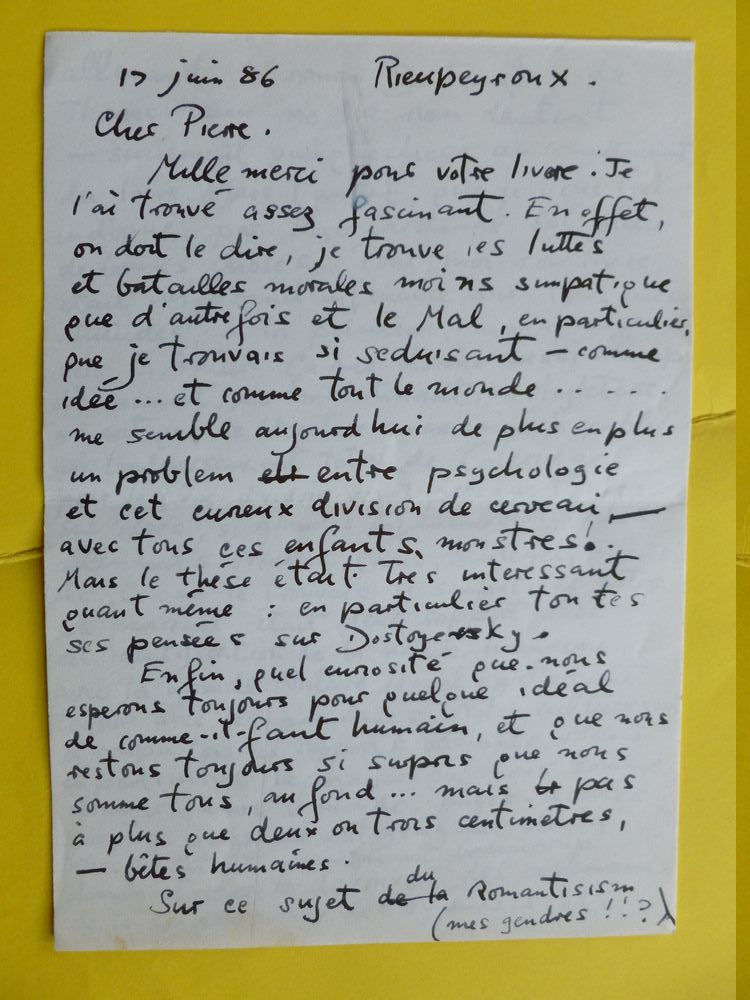 17 juin 86 Rieupeyroux.
Cher Pierre.
Mille merci pour votre livre. Je
l'ai trouvé assez fascinant. En effet,
on doit le dire, je trouve les luttes
et batailles morales moins simpatique
que d'autrefois et le Mal, en particulier,
que je trouvais si seduisant – comme
idée ... et comme tout le monde .....
me semble aujourd hui de plus en plus
un problem entre psychologie
et cet cureux division de cerveau, —
avec tous ces enfants, monstres!.
Mais le thése était tres interessant
quant même : en particulier toutes
ses pensées sur Dostoyevsky.
Enfin, quel curiosité que nous
esperons toujours pour quelque idéal
de comme-il-faut humain, et que nous
restons toujours si surpris que nous
somme tous, au fond ... mais pas
à plus que deux ou trois centimetres,
— bêtes humaines.
Sur ce sujet de la du Romantisism
(mes gendres !!?)